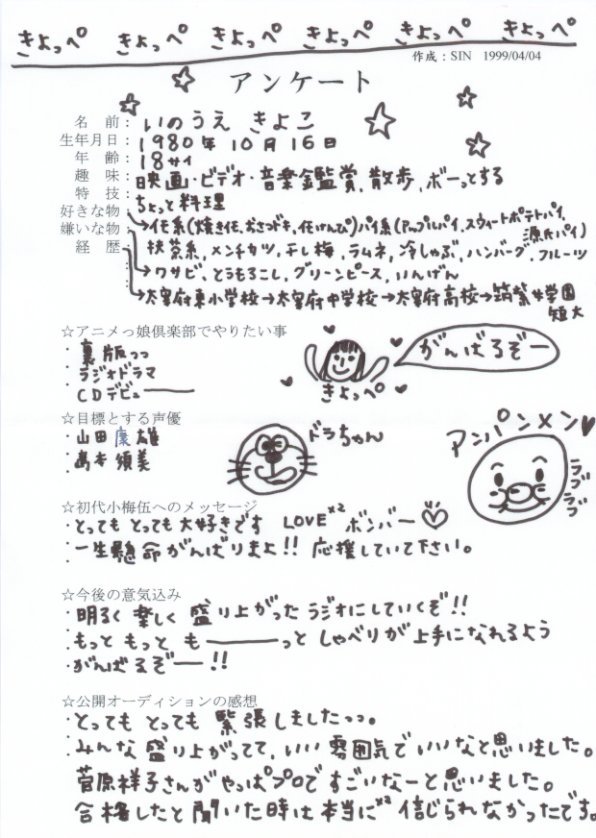 きよっぺ きよっぺ きよっぺ きよっぺ きよっぺ きよっぺ
作成：SIN 1999/04/04
アンケート
名 前：いのうえ きよこ
生年月日：1980年 10月 16日
年 齢：18サイ
趣 味：映画・ビデオ・音楽鑑賞、散歩、ボーっとする
特 技：ちょっと料理
好きな物：→イモ系(焼きイモ、おさつドキ、イモけんぴ)パイ系(アップルパイ、スウィートポテトパイ、源氏パイ)
抹茶系、メンチカツ、干し梅、ラムネ、冷しゃぶ、ハンバーグ、フルーツ
嫌いな物：→ワサビ、とうもろこし、グリーンピース、いんげん
経 歴：→太宰府東小学校→太宰府中学校→太宰府高校→筑紫女学園短大
☆アニメっ娘倶楽部でやりたい事
・裏版っっ
・ラジオドラマ
・CDデビュ―――
がんばるぞー
きよっぺ
☆目標とする声優
・山田康雄
・島本須美
ドラちゃん
アンパンメン♥
ラブラブ
☆初代小梅伍へのメッセージ
・とっても とっても大好きです LOVE×2 ボンバー♡
・一生懸命がんばりまよ!! 応援していて下さい。
☆今後の意気込み
・明るく 楽しく 盛り上がった ラジオにしていくぞ!!
・もっと もっと も―――っと しゃべりが上手になれるよう
・がんばるぞー!!
☆公開オーディションの感想
・とっても とっても 緊張しましたっっ。
・みんな盛り上がってて、いい 雰囲気でいいなと思いました。
菅原祥子さんがやっぱプロですごいなーと思いました。
合格したと聞いた時は本当に×2 信じられなかったです。